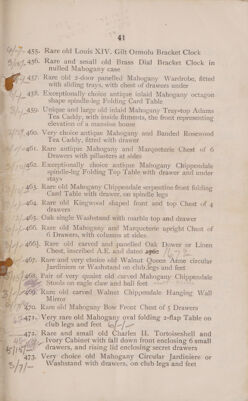 41
455. Rare old Louis XIV. Gilt Ormolu Bracket Clock
456. Rare and small old Brass Dial Bracket Clock in
mulled Mahogany case
457. Rare old 2-door panelled Mahogany Wardrobe, fitted
with sliding trays, with chest of drawers under
458. Exceptionally choice antique inlaid Mahogany octagon
shape spindle-leg Folding Card Table
459. Unique and large old inlaid Mahogany Tray-top Adams
Tea Caddy, with inside fitments, the front representing
elevation of a mansion house
460. Very choice antique Mahogany and Banded Rosewood
Tea Caddy, fitted with drawer
461. Rare antique Mahogany and Marqueterie Chest of 6
Drawers with pillasters at sides
462. Exceptionally choice antique Mahogany Chippendale
spindle-leg Folding Top Table with drawer and under
stays
463. Rare old Mahogany Chippendale serpentine front folding
Card Table with drawer, on spindle legs
464. Rare old Kingwood shaped front and top Chest of 4
drawers
465. Oak single Washstand with marble top and drawer
466. Rare old Mahogany and Marqueterie upright Chest of
6 Drawers, with columns at sides
466½. Rare old carved and panelled Oak Dower or Linen
Chest, inscribed A.E. and dated
467. Rare and very choice old Walnut Queen Anne circular
Jardiniere or Washstand on club legs and feet
468. Pair of very quaint old carved Mahogany Chippendale
Stools on eagle claw and ball feet
469. Rare old carved Walnut Chippendale Hanging Wall
Mirror
470. Rare old Mahogany Bow Front Chest of 5 Drawers
471. Very rare old Mahogany oval folding 2-flap Table on
club legs and feet
472. Rare and small old Charles II. Tortoiseshell and
Ivory Cabinet with fall down front enclosing 6 small
drawers, and rising lid enclosing secret drawers
473. Very choice old Mahogany Circular Jardiniere or
3/7/- Washstand with drawers, on club legs and feet